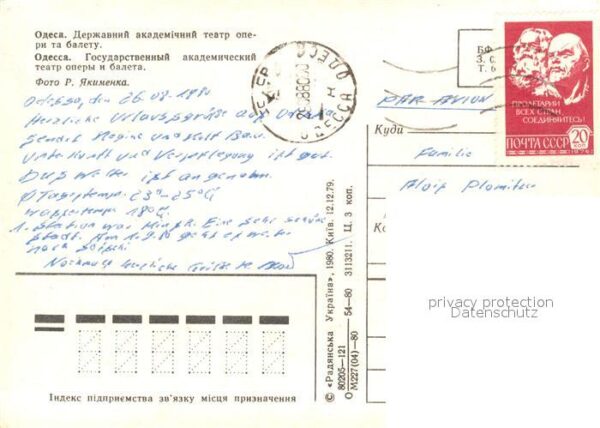 Одеса. Державний академічний театр опе-
ри та балету.
Одесса. Государственный академический
театр оперы и балета.
Фото Р. Якименка.
Odessa, den 26.08.1980
Herzliche Urlaubsgrüße aus Odessa
sendet Regina und Rolf
Unterkunft und Verpflegung ist gut.
Das Wetter ist angenehm.
Ø Tagestemp. 23°-25°C
Wassertemp. 18°C
1. Station war Minsk. Eine sehr schöne
Stadt. Am 1.9.80 geht es weiter
nach
Nochmals herzliche Grüße
Індекс підприємства зв'язку місця призначення
© «Радянська Україна», 1980. Київ. 12.12.79.
80205—121 — 54—80 3113211. Ц. 3 коп.
М227(04)—80
СССР ОДЕССА
БФ
З. с
Т. 6
PAR AVION
ПРОЛЕТАРИИ
ВСЕХ СТРАН,
СОЕДИНЯЙТЕСЬ!
ПОЧТА СССР
20 коп
1976
Куди
Familie
Alois
Ко
privacy protection
Datenschutz